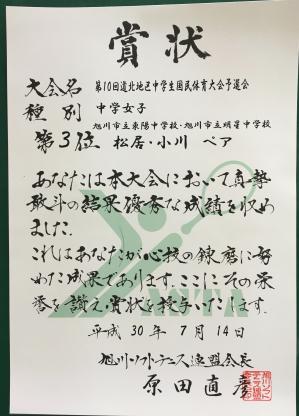 賞状
大会名 第10回道北地区中学生国民体育大会予選会
種別 中学女子
旭川市立東陽中学校・旭川市立明星中学校
第3位 松居・小川 ペア
あなたは本大会において真摯
敢斗の結果優秀な成績を収め
ました.
これはあなたが心技の錬磨に努
めた成果であります.ここにその栄
誉を讃え賞状を授与いたします.
平成30年7月14日
旭川ソフトテニス連盟会長
原田直彦